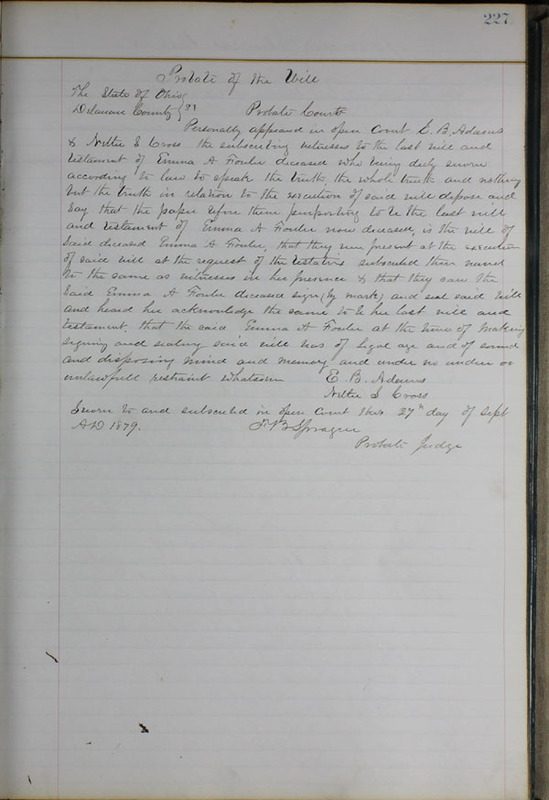 227
Probate of the Will
The State of Ohio
Delaware County } ss Probate Court
Personally appeared in open Court E. B. Adams
& Nettie S Cross the subscribing witnesses to the last will and
testament of Emma A Fowler deceased who being duly sworn
according to law to speak the truth, the whole truth and nothing
but the truth in relation to the execution of said will depose and
say that the paper before them purporting to be the last will
and testament of Emma A Fowler now deceased, is the will of
said deceased Emma A Fowler, that they were present at the execution
of said will at the request of the testatrix subscribed their names
to the same as witnesses in her presence & that they saw the
said Emma A Fowler deceased sign (by mark) and seal said Will
and heard her acknowledge the same to be her last will and
testament, that the said Emma A Fowler at the time of making
signing and sealing said will was of legal age and of sound
and disposing mind and memory and under no undue or
unlawfull restraint whatsoever E. B. Adams
Nettie S Cross
Sworn to and subscribed in open Court this 27th day of Sept
AD 1879. F B Sprague
Probate Judge